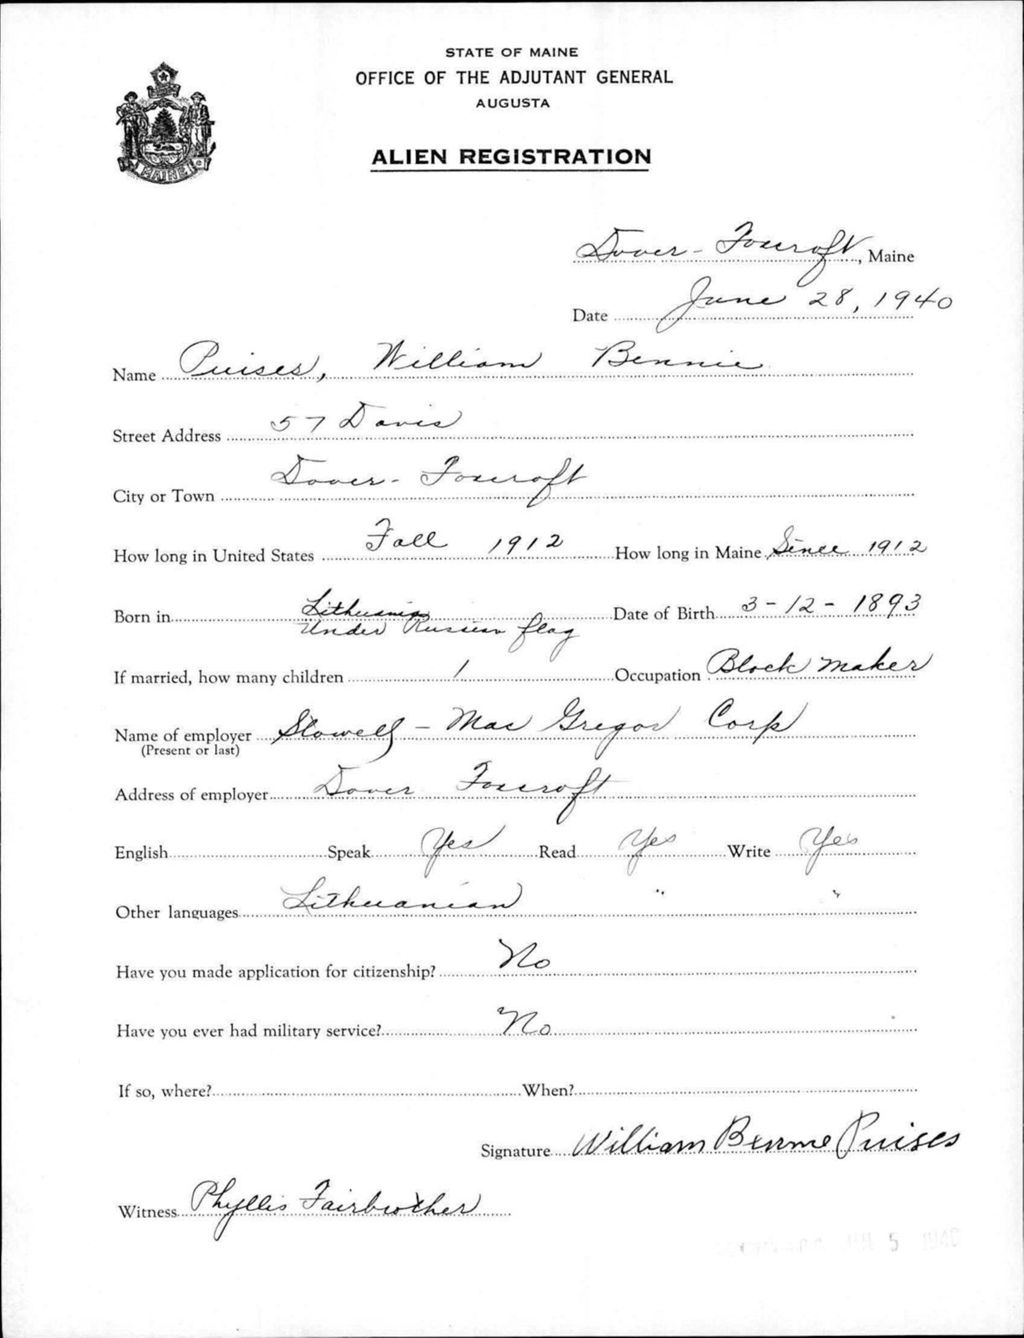 STATE OF MAINE
OFFICE OF THE ADJUTANT GENERAL
AUGUSTA
ALIEN REGISTRATION
MAINE
Dover-Foxcroft, Maine
Date June 28, 1940
Name Puises, William Bennie
Street Address 57 Davis
City or Town Dover-Foxcroft
How long in United States Fall 1912 How long in Maine Since 1912
Born in Lithuania Date of Birth 3-12-1893
Under Russian flag
If married, how many children 1 Occupation Block maker
Name of employer Stowell-MacGregor Corp
(Present or last)
Address of employer Dover Foxcroft
English Speak Yes Read Yes Write Yes
Other languages Lithuanian " "
Have you made application for citizenship? No
Have you ever had military service? No
If so, where? When?
Signature William Bennie Puises
Witness Phyllis Fairbrother
5 1940